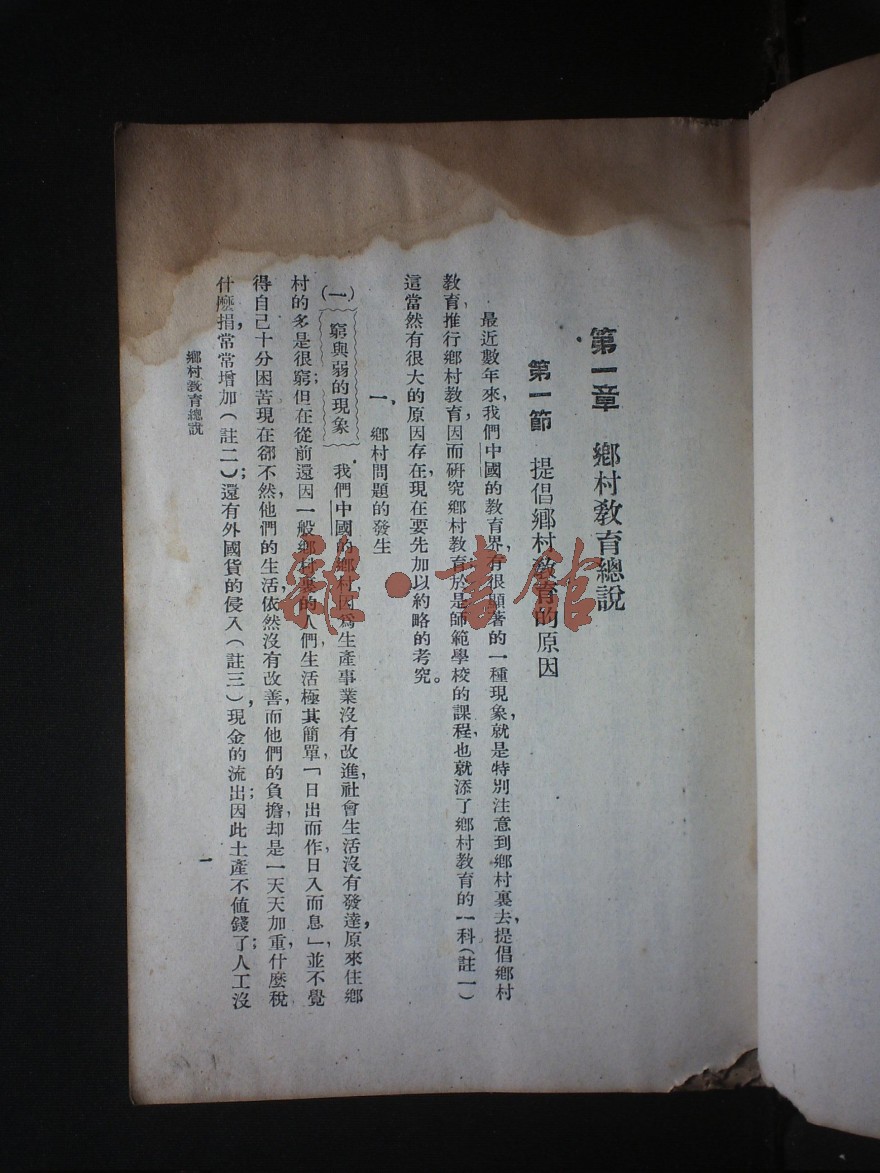 第一章　鄉村教育總說
第一節　提倡鄉村教育的原因
最近數年來，我們中國的教育界，有很顯著的一種現象，就是特別注意到鄉村裏去，提倡鄉村
教育，推行鄉村教育，因而研究鄉村教育；於是師範學校的課程，也就添了鄉村教育的一科（註一）
這當然有很大的原因存在，現在要先加以約略的考究。
一，鄉村問題的發生
（一）窮與弱的現象　我們中國的鄉村，因爲生產事業沒有改進，社會生活沒有發達，原來住鄉
村的多是很窮；但在從前還因一般鄉村裏的人們，生活極其簡單，「日出而作，日入而息」，並不覺
得自己十分困苦，現在卻不然，他們的生活，依然沒有改善，而他們的負擔，却是一天天加重，什麼稅
什麼捐，常常增加（註二）；還有外國貨的侵入（註三），現金的流出；因此土產不值錢了；人工沒
鄉村教育總說
一
雜·書館